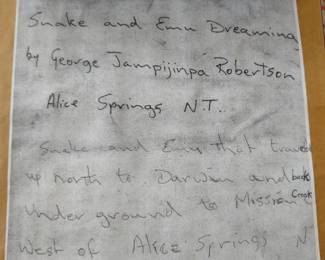 Snake and Emu Dreaming
by George Jampijinpa Robertson
Alice Springs N.T..
Snake and Emu that travel
up north to Darwin and back
under ground to Mission Creek
West of Alice Springs N